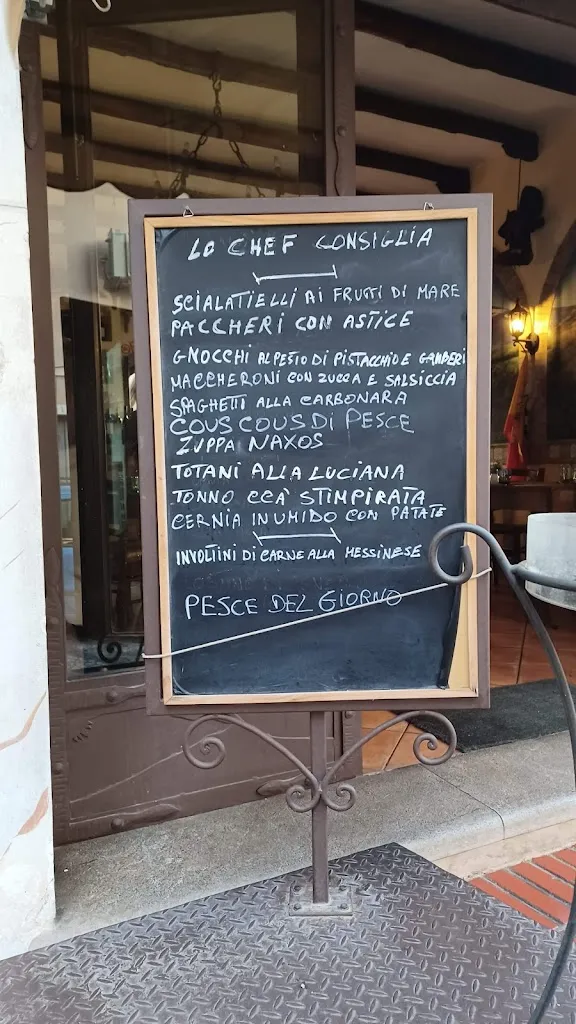 LO CHEF CONSIGLIA
SCIALATIELLI AI FRUTTI DI MARE
PACCHERI CON ASTICE
GNOCCHI AL PESTO DI PISTACCHIO E GAMBERI
MACCHERONI CON ZUCCA E SALSICCIA
SPAGHETTI ALLA CARBONARA
COUS COUS DI PESCE
ZUPPA NAXOS
TOTANI ALLA LUCIANA
TONNO CCÀ STIMPIRATA
CERNIA IN UMIDO CON PATATE
INVOLTINI DI CARNE ALLA MESSINESE
PESCE DEL GIORNO